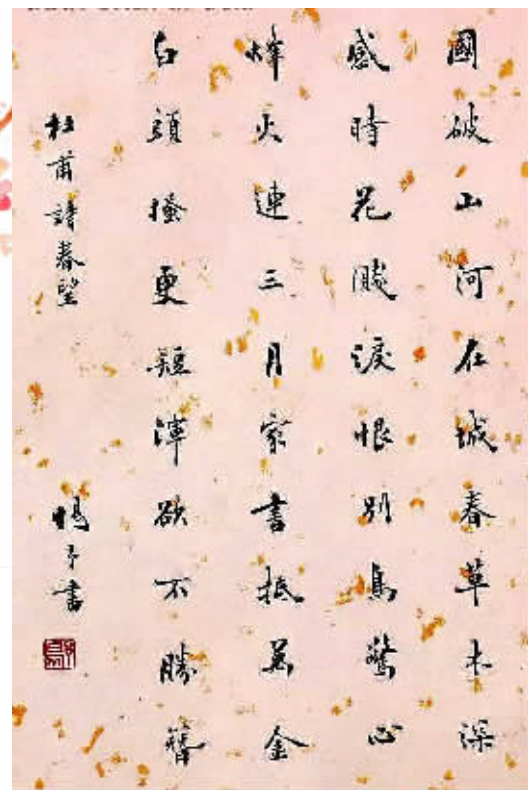 國破山河在城春草木深
感時花濺淚恨別鳥驚心
烽火連三月家書抵萬金
白頭搔更短渾欲不勝簪
杜甫詩春望
書